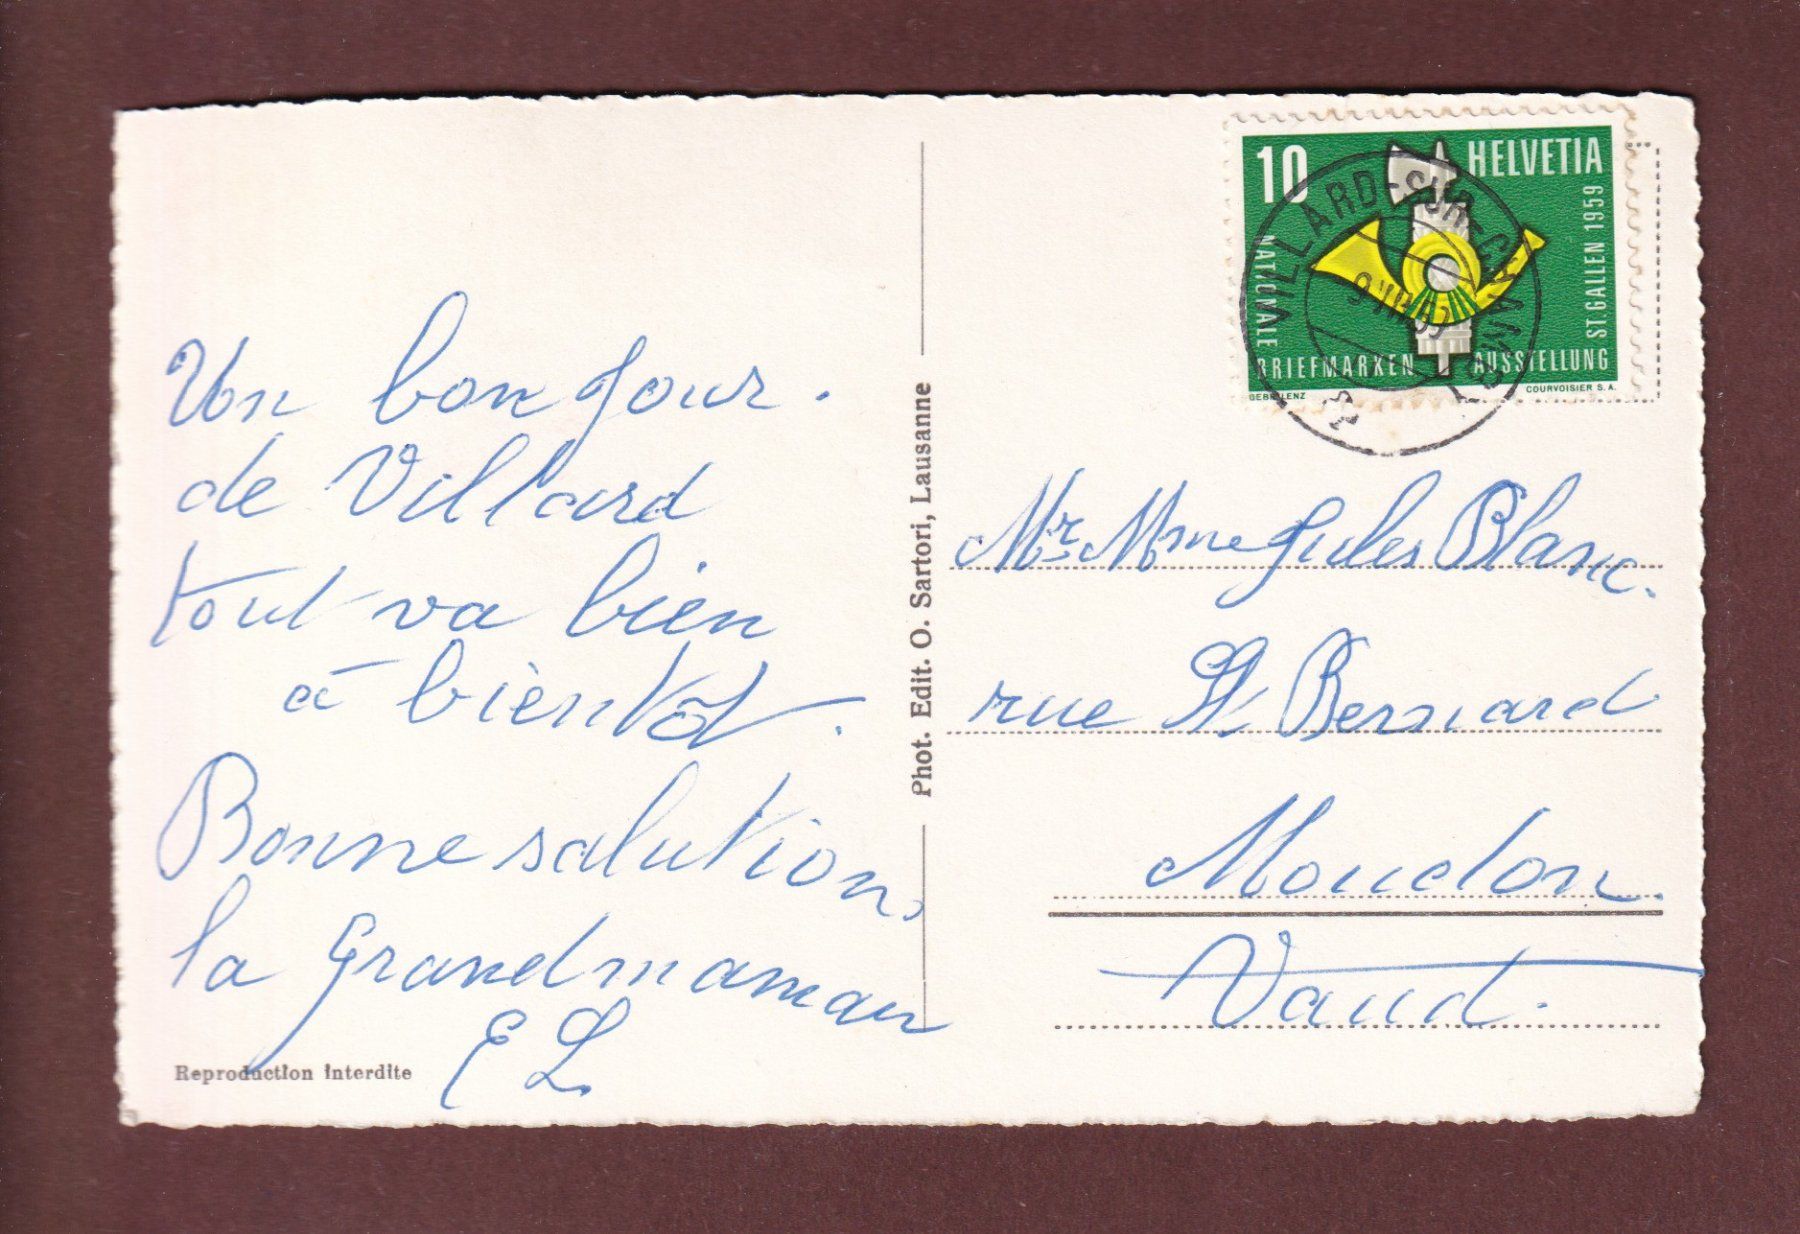 Un bonjour.
de Villard
tout va bien
à bientôt.
Bonne salution,
la Grandmaman
E L
Reproduction interdite
Phot. Edit. O. Sartori, Lausanne
10
HELVETIA
NATIONALE
BRIEFMARKEN AUSSTELLUNG
ST.GALLEN 1959
GEBR. LENZ
COURVOISIER S.A.
VILLARD-SUR-CHAMBY
Mr Mme Jules Blanc.
rue St Bernard
Moudon.
Vaud.